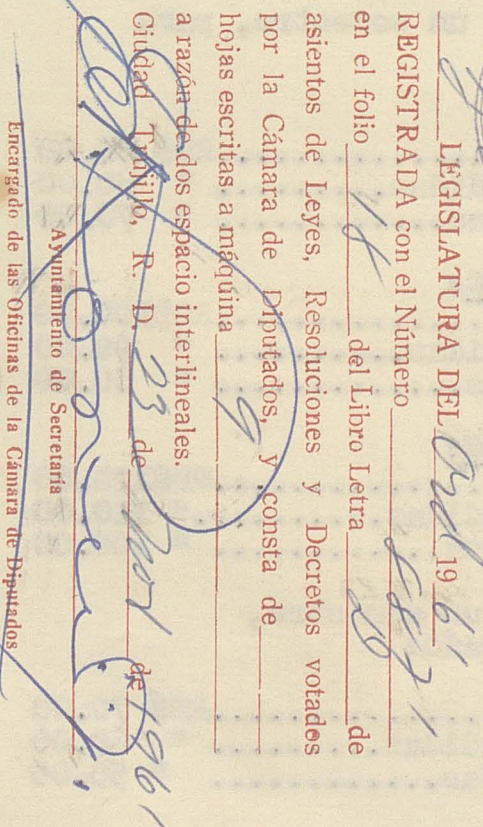 LEGISLATURA DEL Ord 1961
REGISTRADA con el Número 5871
en el folio 118 del Libro Letra de
asientos de Leyes, Resoluciones y Decretos votados
por la Cámara de Diputados, y consta de
hojas escritas a máquina 9
a razón de dos espacio interlineales.
Ciudad Trujillo, R. D. 23 de de 1961
Ayuntamiento de Secretaría
Encargado de las Oficinas de la Cámara de Diputados